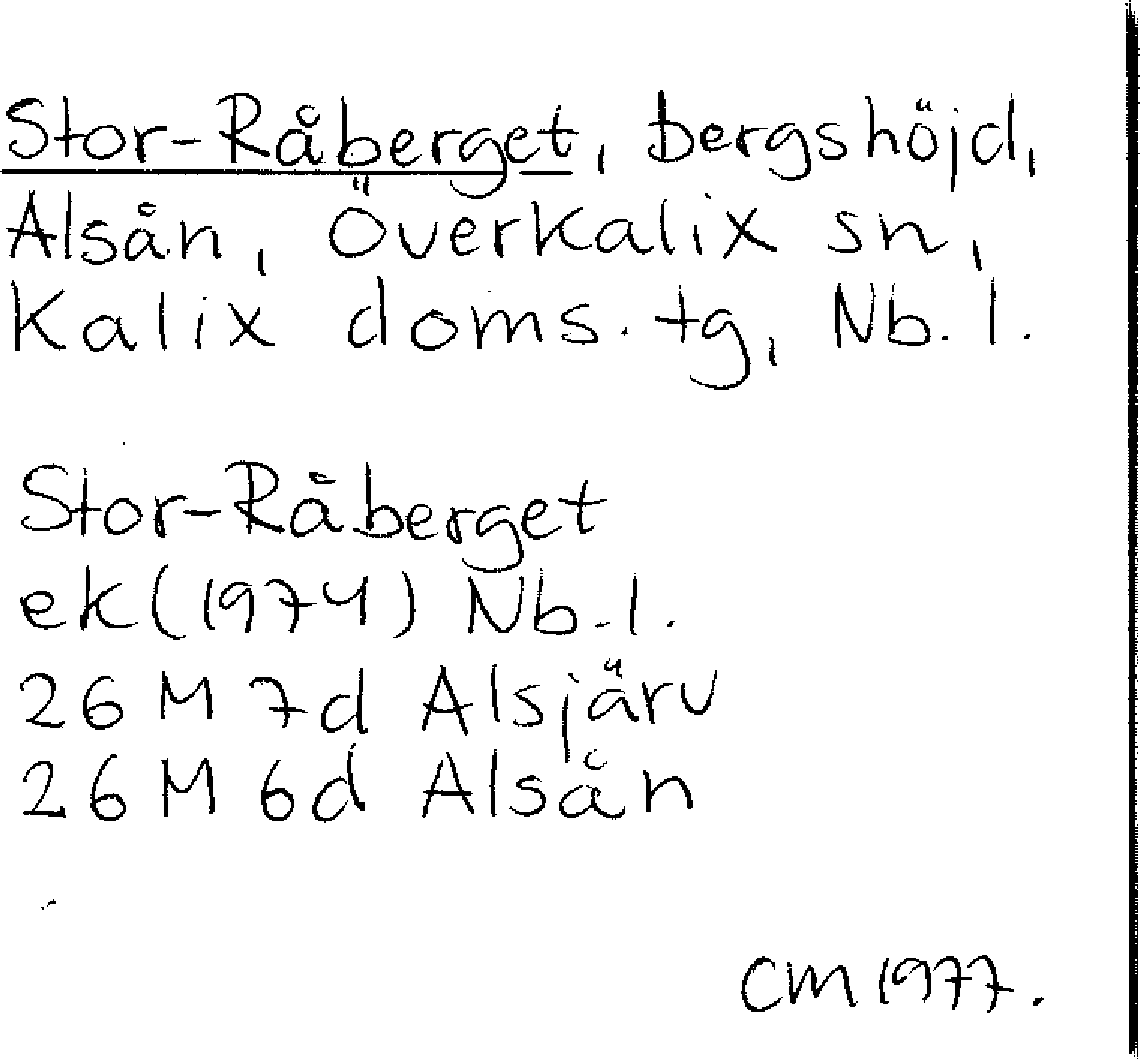 Stor-Råberget, bergshöjd,
Alsån, Överkalix sn,
Kalix doms. tg, Nb. l.
Stor-Råberget
ek (1974) Nb. l.
26 M 7d Alsjärv
26 M 6d Alsån
CM 1977.